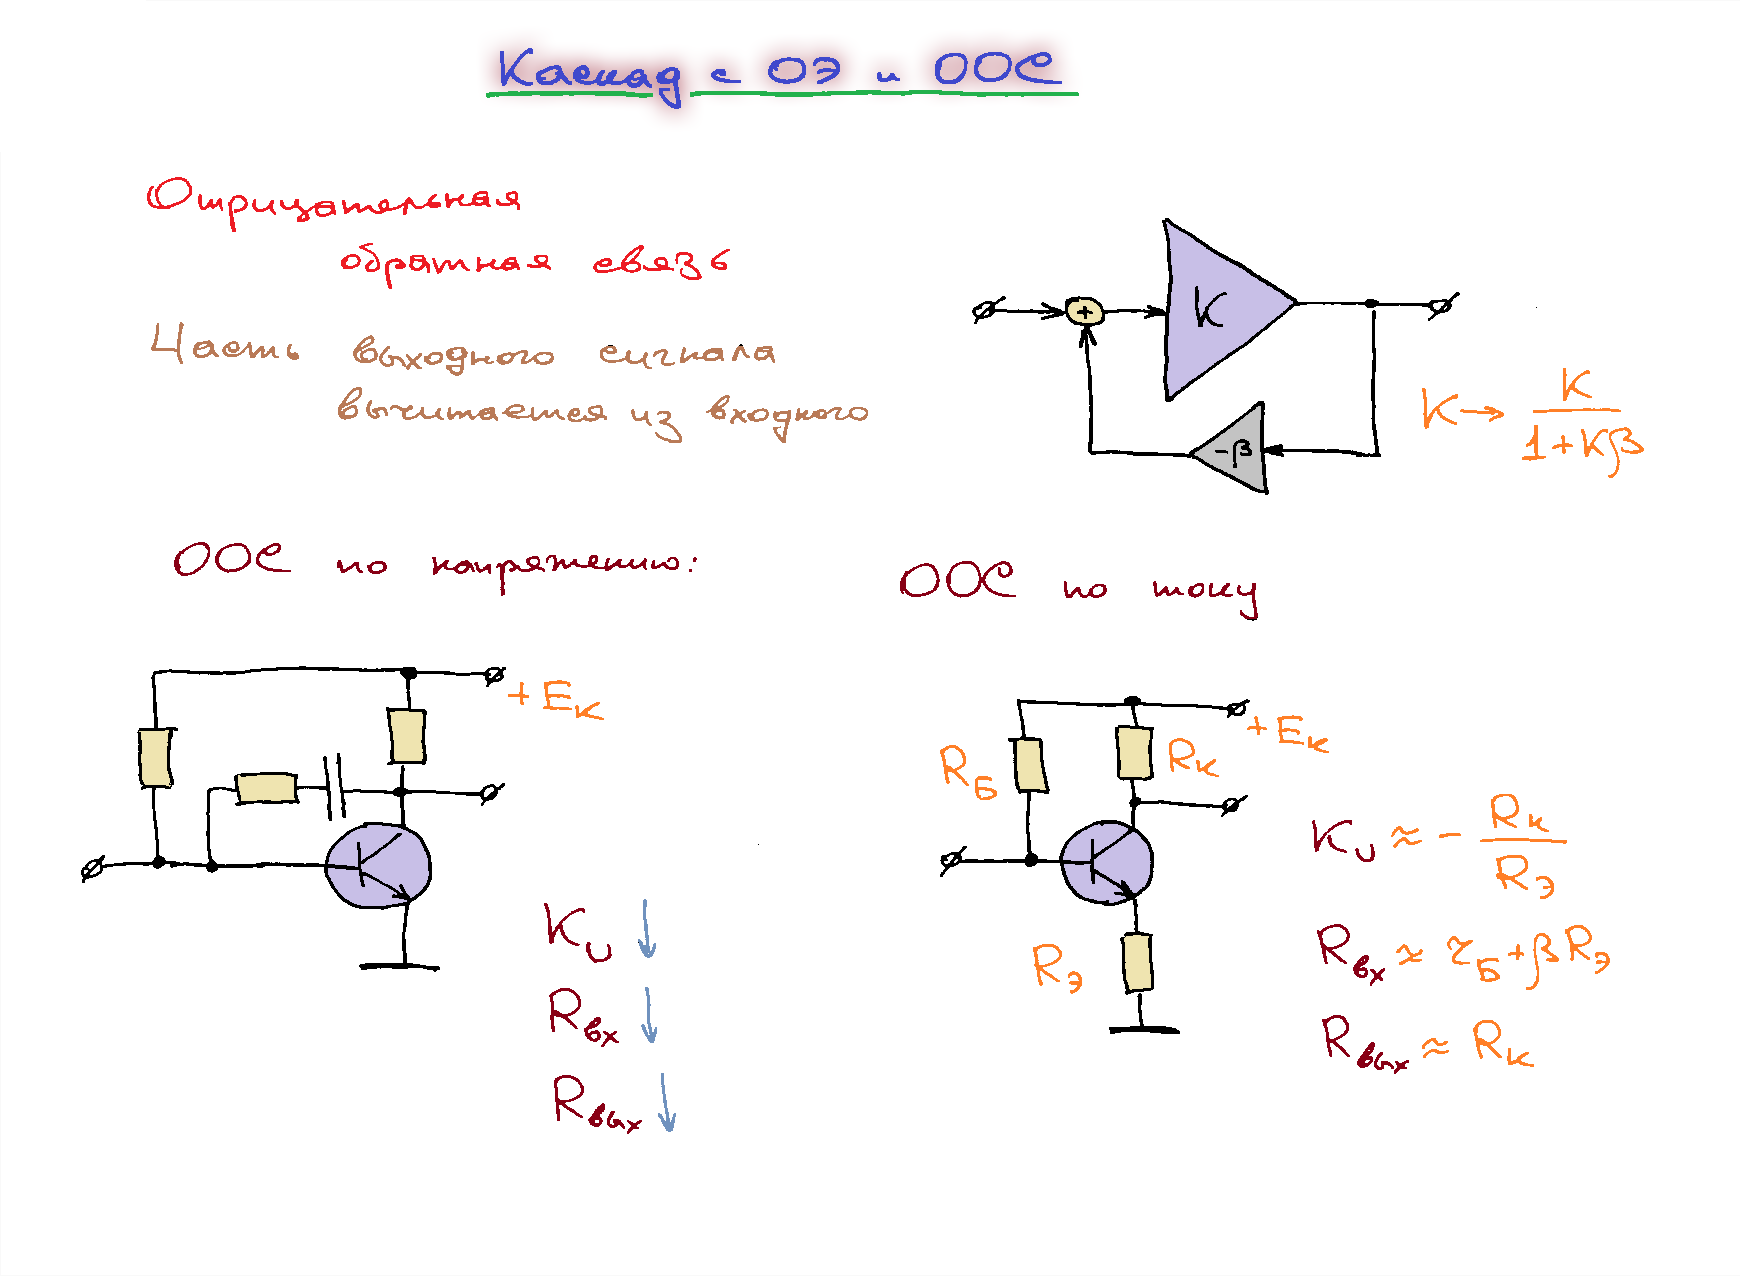 Каскад с ОЭ и ООС
Отрицательная
обратная связь
Часть выходного сигнала
вычитается из входного
+
K
-β
K → K / (1 + Kβ)
ООС по напряжению:
ООС по току
+ Eк
Kᴜ ↓
Rвх ↓
Rвых ↓
+ Eк
Rб
Rк
Rэ
Kᴜ ≈ - Rк / Rэ
Rвх ≈ rб + βRэ
Rвых ≈ Rк